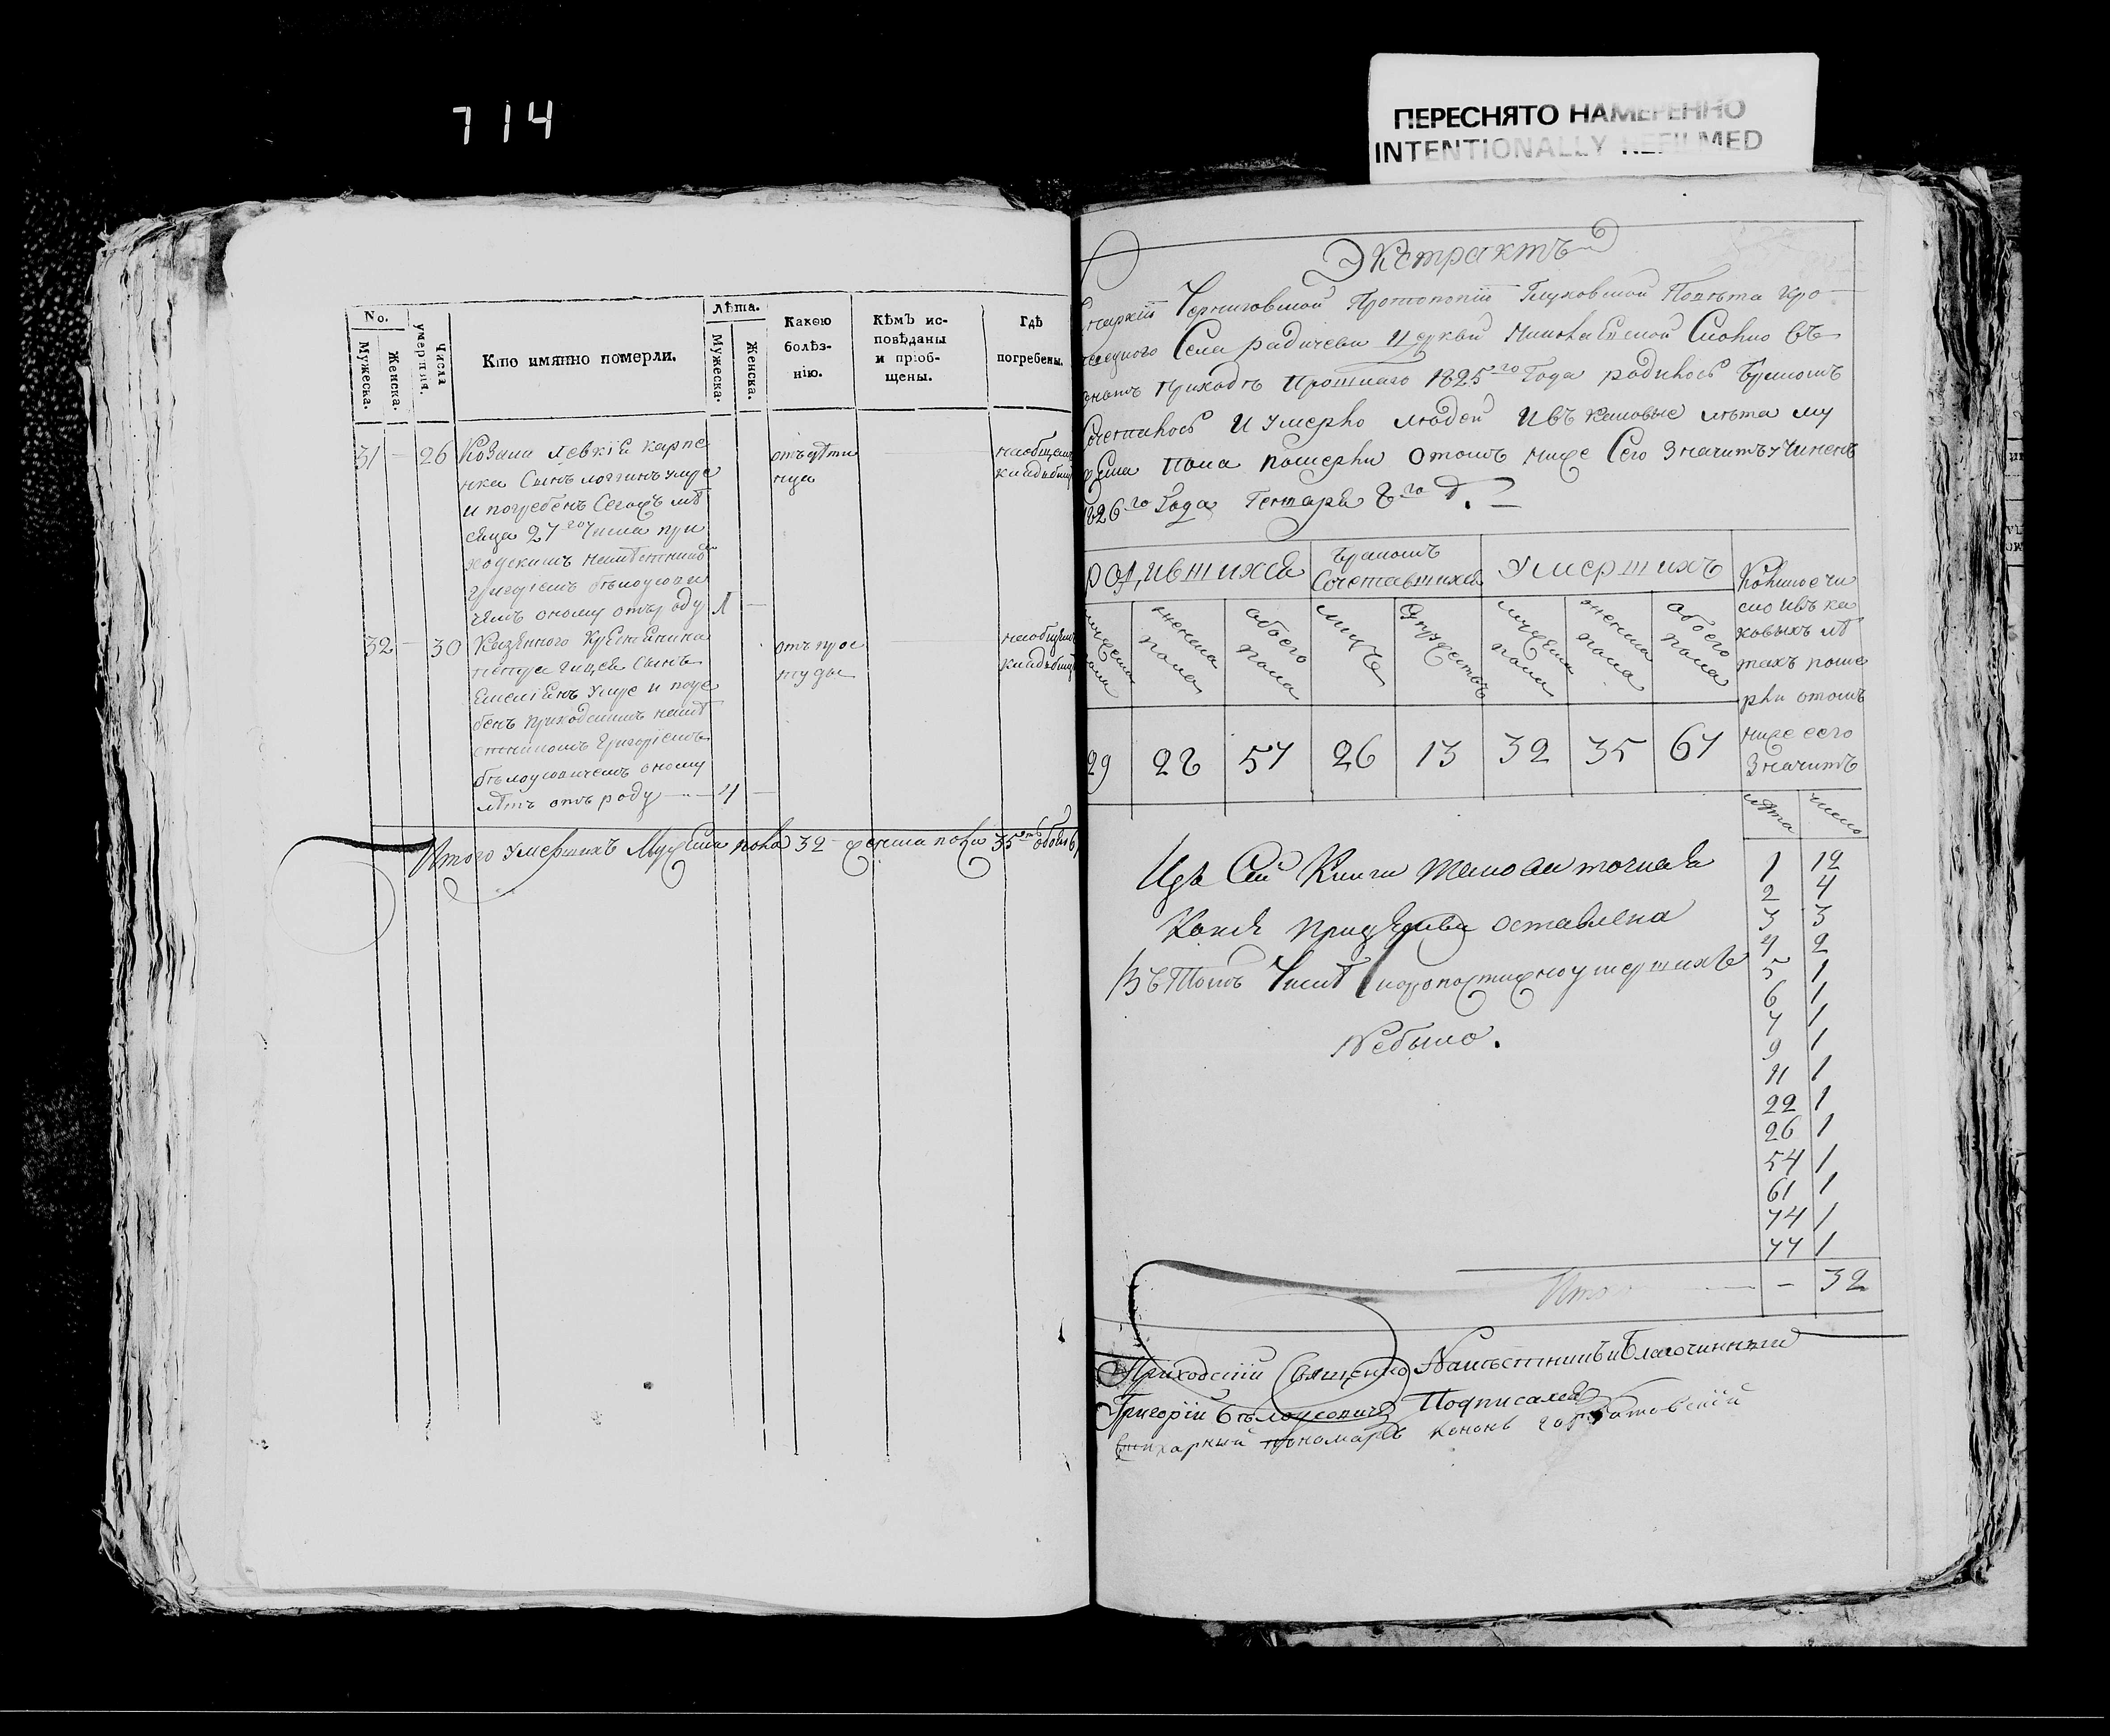 714
ПЕРЕСНЯТО НАМЕРЕННО
INTENTIONALLY REFILMED
No.
Мужеска.
Женска.
Числа умершия.
Кто имянно померли.
Лѣта.
Мужеска.
Женска.
Какою болѣз-
нію.
Кѣмъ ис-
повѣданы
и пріоб-
щены.
Гдѣ
погребены.
31 — 26 Козака Левкія Карпе
нка Сынъ Логгинъ умре
и погребенъ Сегожъ мѣ
сяца 27го Числа при
ходскимъ намѣстникомъ
Григоріемъ Бѣлоусови
чемъ оному отъ роду 1 —
отъ дѣти
нца
на общемъ
кладбищѣ
32 — 30 Казенного Крестянина
сынъ
Емелiянъ умре и погре
бенъ приходскимъ намѣ
стникомъ Григоріемъ
Бѣлоусовичемъ оному
лѣтъ отъ роду — 4 —
отъ прос
туды
на общемъ
кладбищѣ
Итого умершихъ Мужеска пола 32 женска пола 35 обоего 6
Экстрактъ
Черниговской Протопопіи Глуховской Повѣта Кро
левецкого Села Радичева Церкви Николаевской Сколко въ
ономъ приходѣ Прошлаго 1825го Года родилось бракомъ
Сочеталось и умерло людей и въ каковые лѣта му
жеска пола померли отомъ ниже Сего значитъ учиненъ
1826го Года Генваря 8го д.
родившихся
бракомъ
Сочетавшихся
умершихъ
Коликое чи
сло и въ ка
ковыхъ лѣ
тахъ поме
рли отомъ
ниже сего
значитъ
мужеска пола
женска пола
обоего пола
лицъ
супружествъ
мужеска пола
женска пола
обоего пола
29 28 57 26 13 32 35 67
лѣта число
1 12
2 4
3 3
4 2
5 1
6 1
7 1
9 1
11 1
22 1
26 1
54 1
61 1
74 1
77 1
Итого — — 32
Изъ Сей Книги таковая точная
Копія при Церкви оставлена
Въ Томъ Числѣ скоропостижно умершихъ
Небыло.
Приходскій Священно Намѣстникъ и Благочинный
Григорій Бѣлоусовичъ Подписался
Стихарный пономарь Кононъ